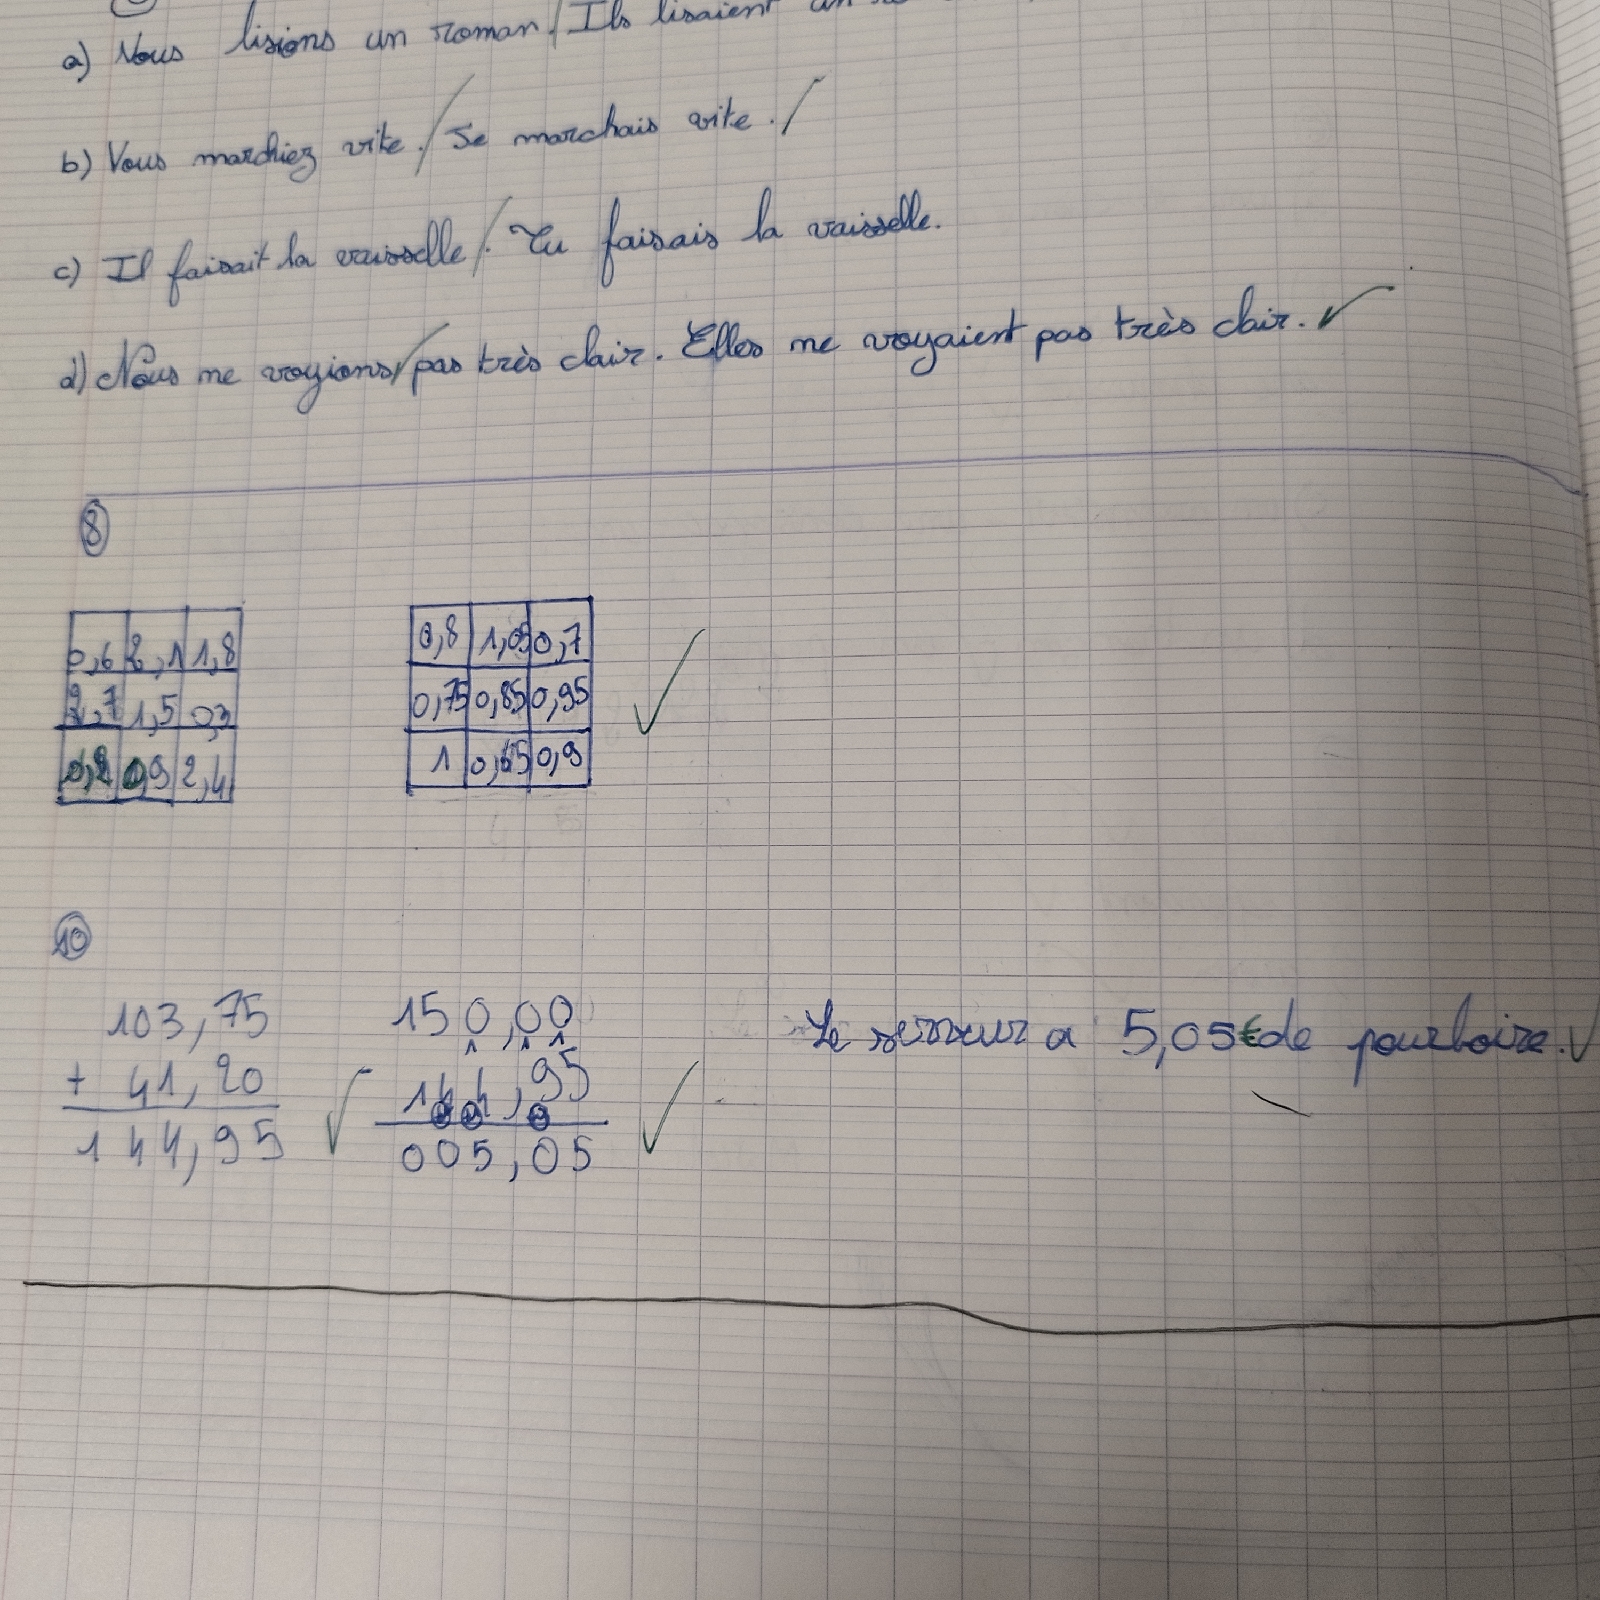 a) Nous lisions un roman. Ils lisaient un
b) Vous marchiez vite. Je marchais vite.
c) Il faisait la vaisselle. Tu faisais la vaisselle.
d) Nous ne voyions pas très clair. Elles ne voyaient pas très clair.
8
0,6 2,1 1,8
2,7 1,5 0,3
0,9 2,4
0,8 1,05 0,7
0,75 0,85 0,95
1 0,65 0,9
10
103,75
+ 41,20
144,95
150,00
144,95
005,05
Le serveur a 5,05€ de pourboire.